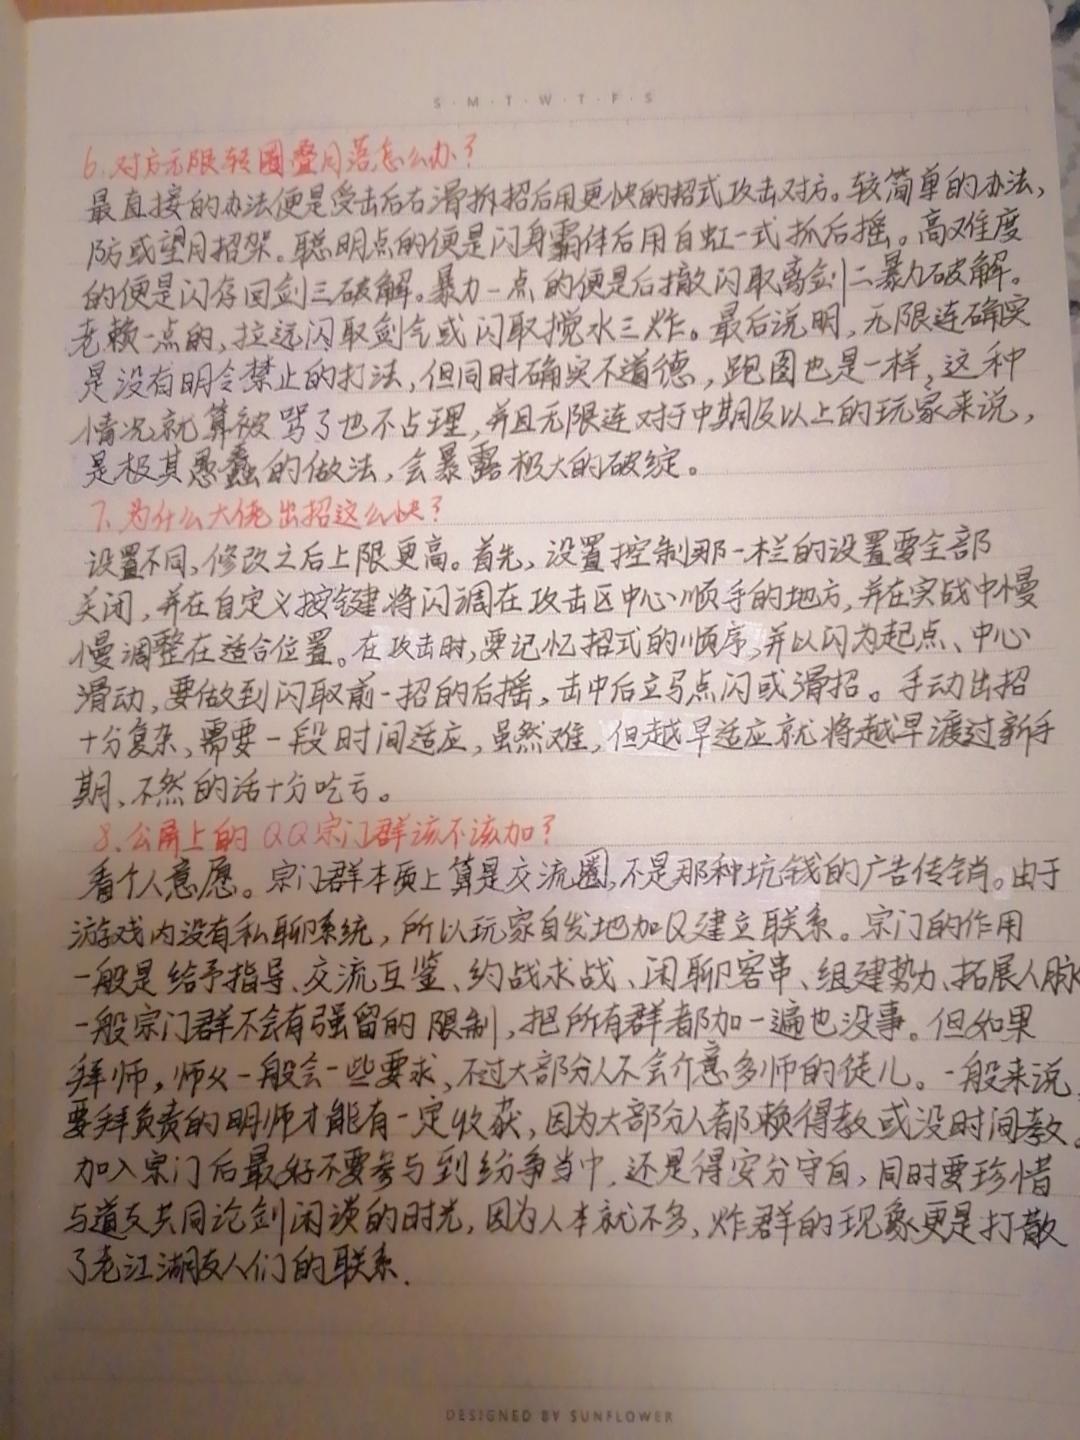 S·M·T·W·T·F·S
6.对方无限转圈叠月落怎么办？
最直接的办法便是受击后右滑拆招后用更快的招式攻击对方。较简单的办法，
防或望月招架。聪明点的便是闪身霸体后用白虹一式抓后摇。高难度
的便是闪存回剑三破解。暴力一点的便是后撤闪取离剑二暴力破解。
老赖一点的，拉远闪取剑气或闪取搅水三炸。最后说明，无限连确实
是没有明令禁止的打法，但同时确实不道德，跑图也是一样，这种
情况就算被骂了也不占理，并且无限连对于中期及以上的玩家来说，
是极其愚蠢的做法，会暴露极大的破绽。
7.为什么大佬出招这么快？
设置不同，修改之后上限更高。首先，设置控制那一栏的设置要全部
关闭，并在自定义按键将闪调在攻击区中心顺手的地方，并在实战中慢
慢调整在适合位置。在攻击时，要记忆招式的顺序，并以闪为起点、中心
滑动，要做到闪取前一招的后摇，击中后立马点闪或滑招。手动出招
十分复杂，需要一段时间适应，虽然难，但越早适应就将越早渡过新手
期，不然的话十分吃亏。
8.公屏上的QQ宗门群该不该加？
看个人意愿。宗门群本质上算是交流圈，不是那种坑钱的广告传销。由于
游戏内没有私聊系统，所以玩家自发地加Q建立联系。宗门的作用
一般是给予指导、交流互鉴、约战求战、闲聊客串、组建势力、拓展人脉
一般宗门群不会有强留的限制，把所有群都加一遍也没事。但如果
拜师，师父一般会一些要求，不过大部分人不会介意多师的徒儿。一般来说，
要拜负责的明师才能有一定收获，因为大部分人都赖得教或没时间教。
加入宗门后最好不要参与到纷争当中，还是得安分守自，同时要珍惜
与道友共同论剑闲谈的时光，因为人本就不多，炸群的现象更是打散
了老江湖友人们的联系.
DESIGNED BY SUNFLOWER